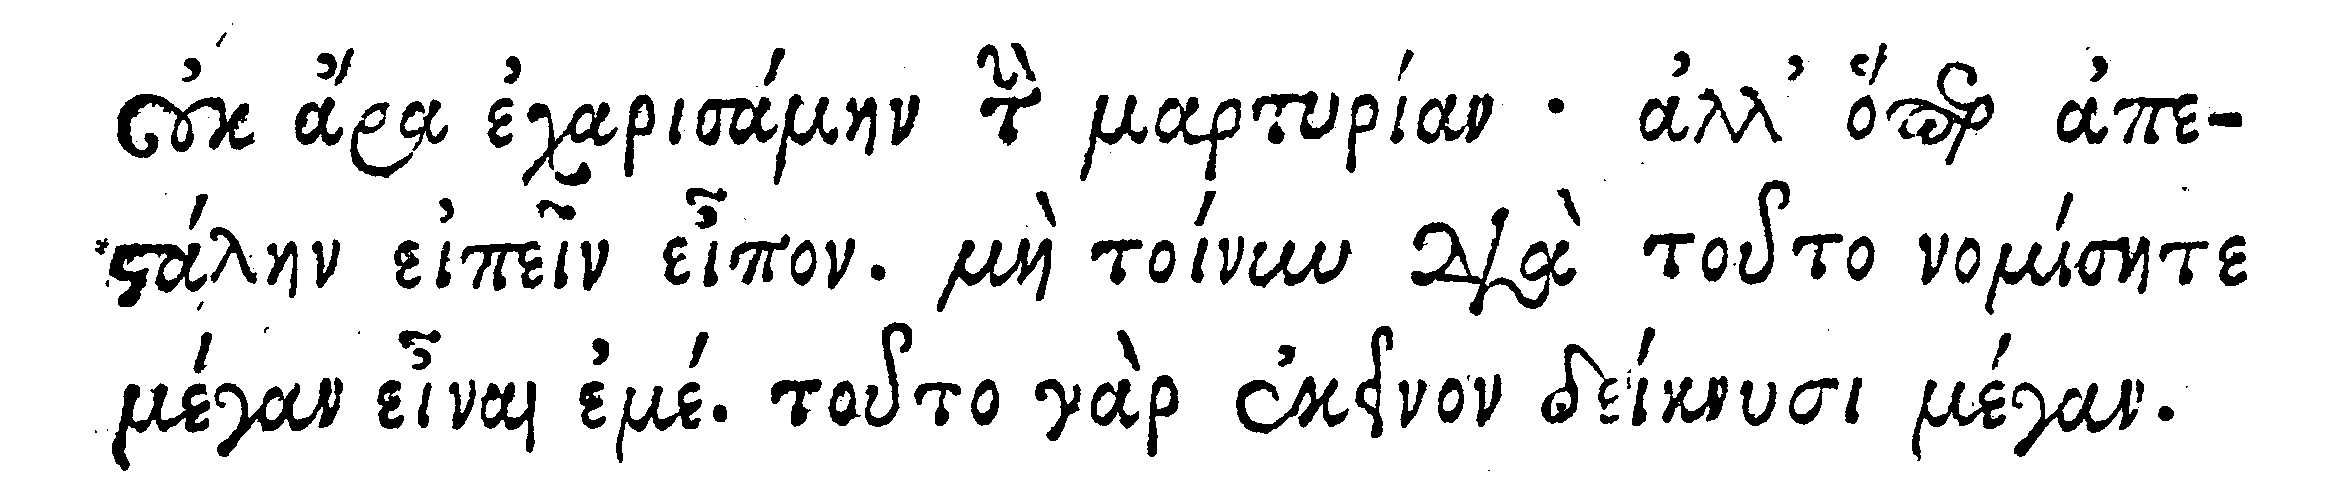 οὐκ ἄρα ἐχαρισάμην τὴν μαρτυρίαν · ἀλλ' ὅπερ ἀπε-
στάλην εἰπεῖν εἶπον. μὴ τοίνυν διὰ τοῦτο νομίσητε
μέγαν εἶναι ἐμέ. τοῦτο γὰρ ἐκεῖνον δείκνυσι μέγαν.